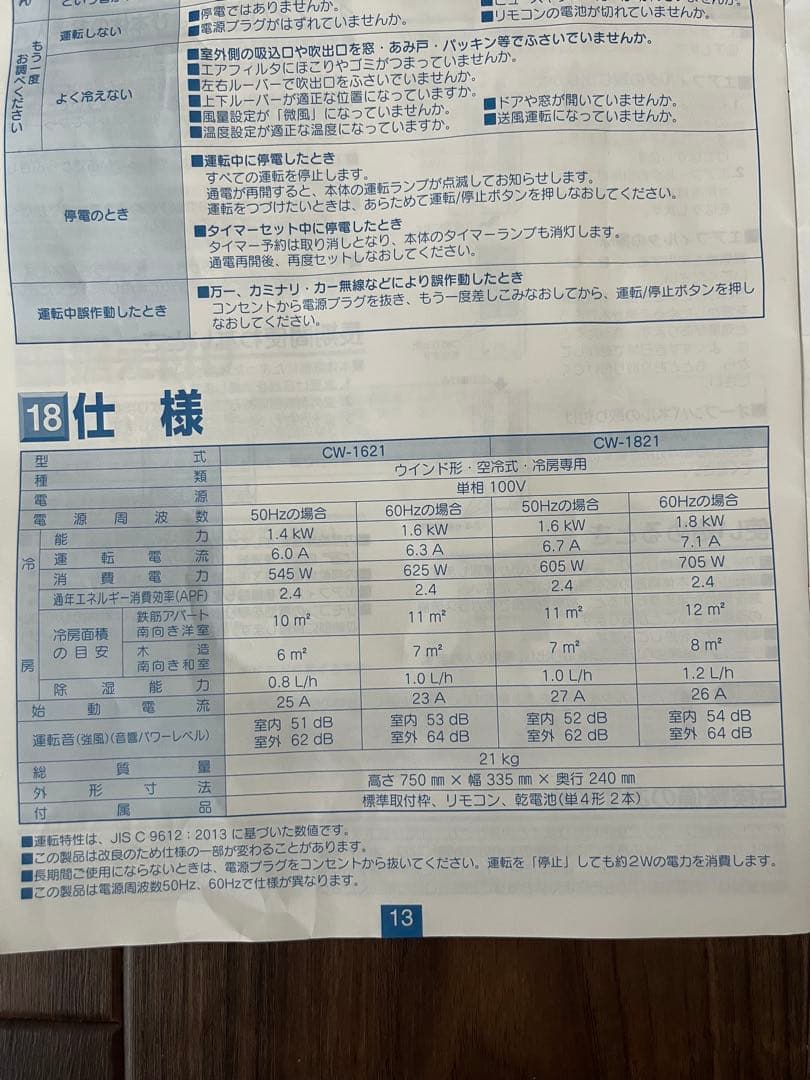 運転しない
■停電ではありませんか。
■電源プラグがはずれていませんか。
■リモコンの電池が切れていませんか。
もう一度お調べください
よく冷えない
■室外側の吸込口や吹出口を窓・あみ戸・パッキン等でふさいでいませんか。
■エアフィルタにほこりやゴミがつまっていませんか。
■左右ルーバーで吹出口をふさいでいませんか。
■上下ルーバーが適正な位置になっていますか。
■風量設定が「微風」になっていませんか。
■温度設定が適正な温度になっていますか。
■ドアや窓が開いていませんか。
■送風運転になっていませんか。
停電のとき
■運転中に停電したとき
すべての運転を停止します。
通電が再開すると、本体の運転ランプが点滅してお知らせします。
運転をつづけたいときは、あらためて運転/停止ボタンを押しなおしてください。
■タイマーセット中に停電したとき
タイマー予約は取り消しとなり、本体のタイマーランプも消灯します。
通電再開後、再度セットしなおしてください。
運転中誤作動したとき
■万一、カミナリ・カー無線などにより誤作動したとき
コンセントから電源プラグを抜き、もう一度差しこみなおしてから、運転/停止ボタンを押し
なおしてください。
18 仕様
型式 CW-1621 CW-1821
種類 ウインド形・空冷式・冷房専用
電源 単相 100V
電源周波数 50Hzの場合 60Hzの場合 50Hzの場合 60Hzの場合
冷房
能力 1.4 kW 1.6 kW 1.6 kW 1.8 kW
運転電流 6.0 A 6.3 A 6.7 A 7.1 A
消費電力 545 W 625 W 605 W 705 W
通年エネルギー消費効率(APF) 2.4 2.4 2.4 2.4
冷房面積の目安
鉄筋アパート南向き洋室 10 m² 11 m² 11 m² 12 m²
木造南向き和室 6 m² 7 m² 7 m² 8 m²
除湿能力 0.8 L/h 1.0 L/h 1.0 L/h 1.2 L/h
始動電流 25 A 23 A 27 A 26 A
運転音(強風)(音響パワーレベル) 室内 51 dB 室内 53 dB 室内 52 dB 室内 54 dB
室外 62 dB 室外 64 dB 室外 62 dB 室外 64 dB
総質量 21 kg
外形寸法 高さ 750 mm × 幅 335 mm × 奥行 240 mm
付属品 標準取付枠、リモコン、乾電池(単4形 2本)
■運転特性は、JIS C 9612：2013 に基づいた数値です。
■この製品は改良のため仕様の一部が変わることがあります。
■長期間ご使用にならないときは、電源プラグをコンセントから抜いてください。運転を「停止」しても約2Wの電力を消費します。
■この製品は電源周波数50Hz、60Hzで仕様が異なります。
13